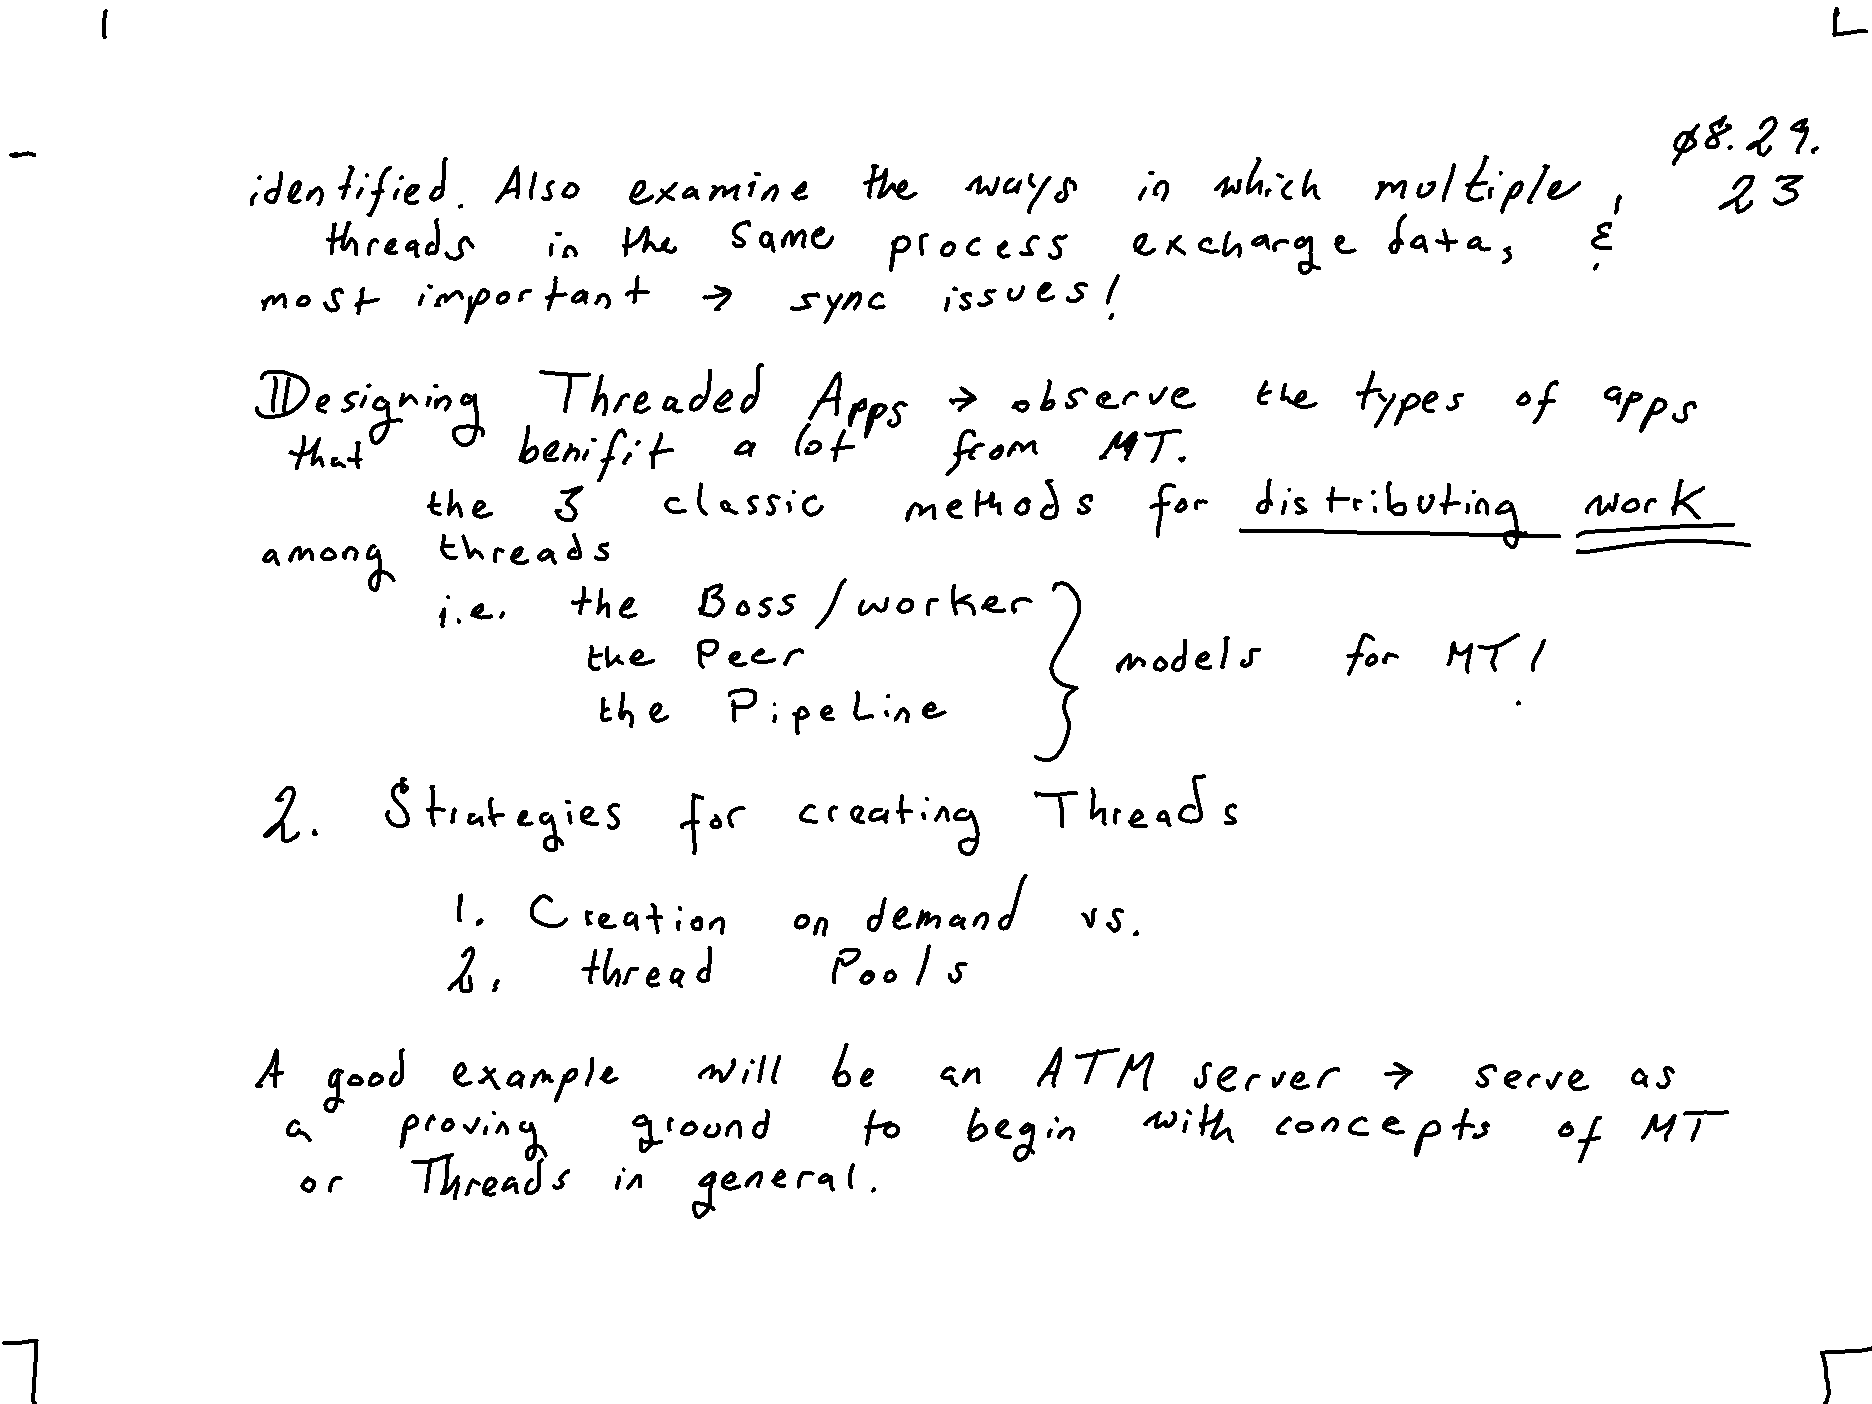 ø8.29.
23
identified. Also examine the ways in which multiple
threads in the same process exchange data, &
most important → sync issues!
Designing Threaded Apps → observe the types of apps
that benifit a lot from MT.
the 3 classic methods for distributing work
among threads
i.e. the Boss/worker
the Peer
the PipeLine
models for MT!
2. Strategies for creating Threads
1. Creation on demand vs.
2. thread Pools
A good example will be an ATM server → serve as
a proving ground to begin with concepts of MT
or Threads in general.